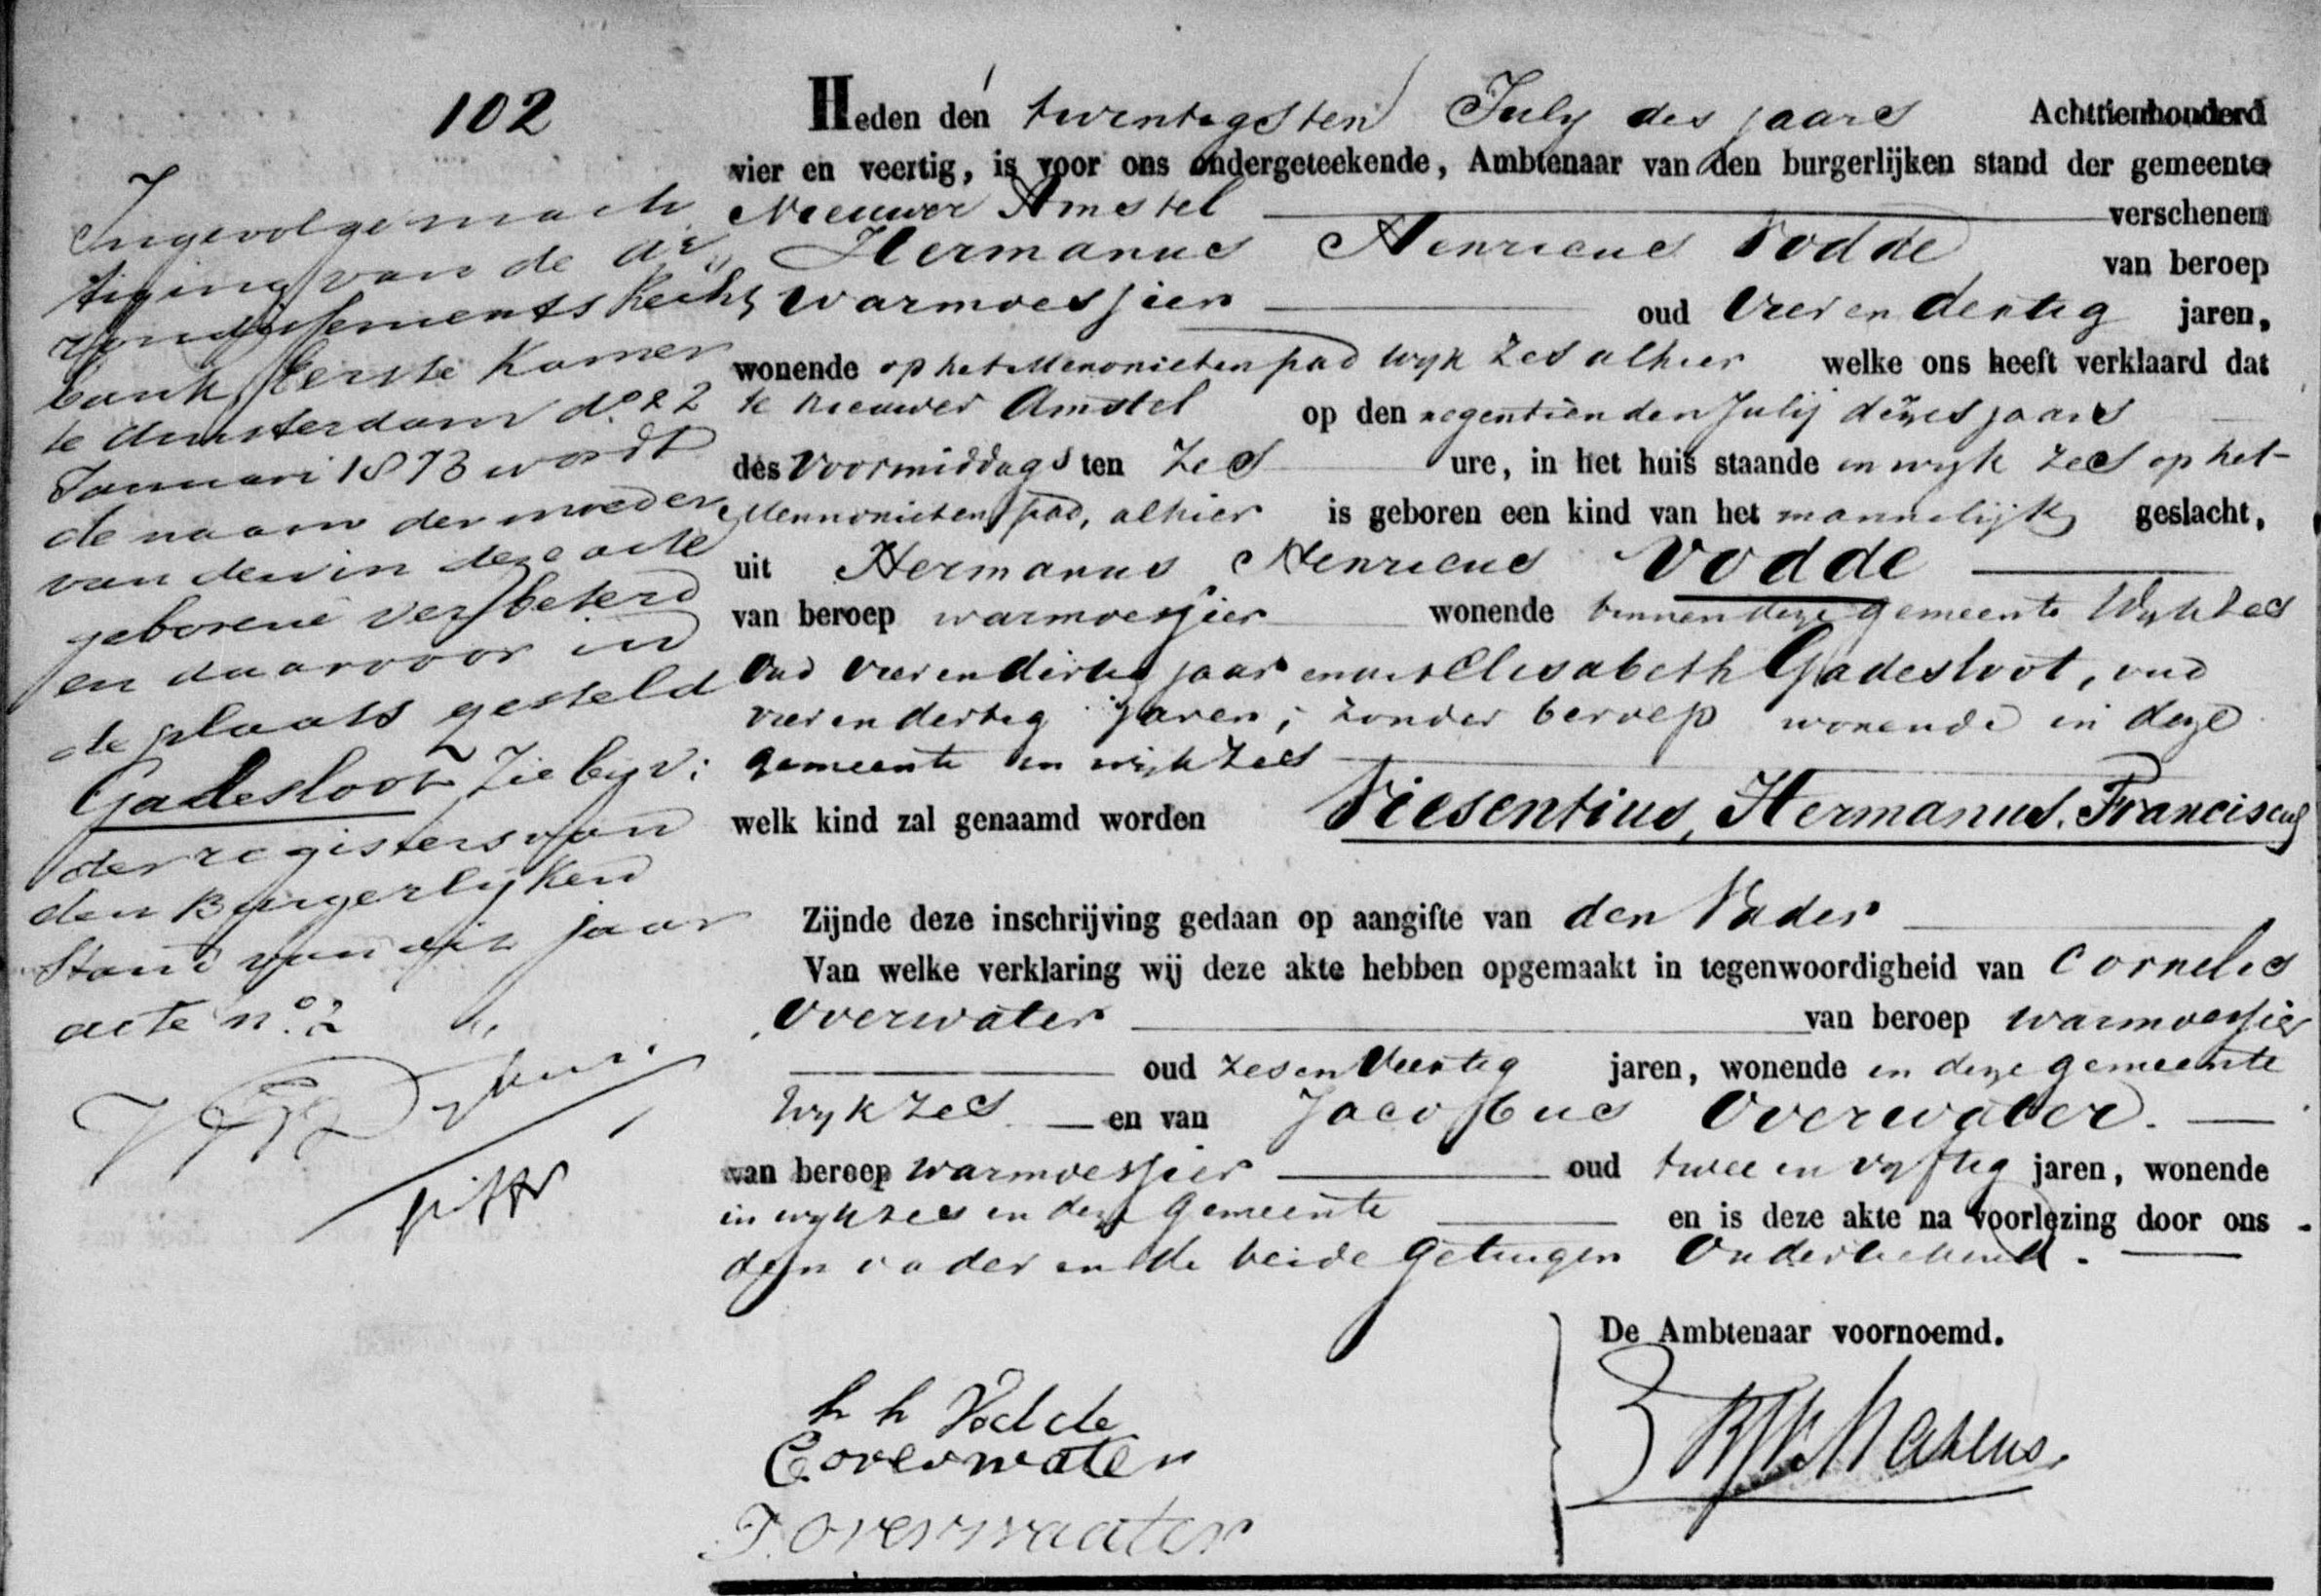 102
Ingevolge mach
tiging van de Ar"
rondissements Recht
bank Eerste Kamer
te Amsterdam do. 22
Januari 1873 wordt
de naam der moeder
van den in deze acte
geborene verbeterd
en daarvoor in
de plaats gesteld
Gadesloot Zie byv:
der registers van
den Burgerlyken
Stand van dit jaar
acte no. 2
Heden den twentigsten July des jaars Achttienhonderd
vier en veertig, is voor ons ondergeteekende, Ambtenaar van den burgerlijken stand der gemeente
Nieuwer Amstel verschenen
Hermanus Henricus Vodde van beroep
warmoesjier oud vier en dertig jaren,
wonende op het Menonieten pad wyk zes alhier welke ons heeft verklaard dat
te Nieuwer Amstel op den negentienden Julij dezes jaars
des Voormiddags ten zes ure, in het huis staande in wyk zes op het
Mennonieten pad, alhier is geboren een kind van het mannelijk geslacht,
uit Hermanus Henricus Vodde
van beroep warmoesjier wonende binnen deze gemeente Wyk zes
Oud vier en dertig jaar en uit Elisabeth Gadesloot, oud
vier en dertig jaren, zonder beroep wonende in deze
gemeente in wyk zes
welk kind zal genaamd worden Viesentius, Hermanus. Franciscus
Zijnde deze inschrijving gedaan op aangifte van den Vader
Van welke verklaring wij deze akte hebben opgemaakt in tegenwoordigheid van Cornelis
Overwater van beroep warmoesjier
oud zes en Veertig jaren, wonende in deze gemeente
Wyk zes en van Jacobus Overwater.
van beroep warmoesjier oud twee en vyftig jaren, wonende
in wyk zes in deze gemeente en is deze akte na voorlezing door ons
den vader en de beide getuigen Onderteekend.
De Ambtenaar voornoemd.
h h Vodde
C. overwater
J. overwaater